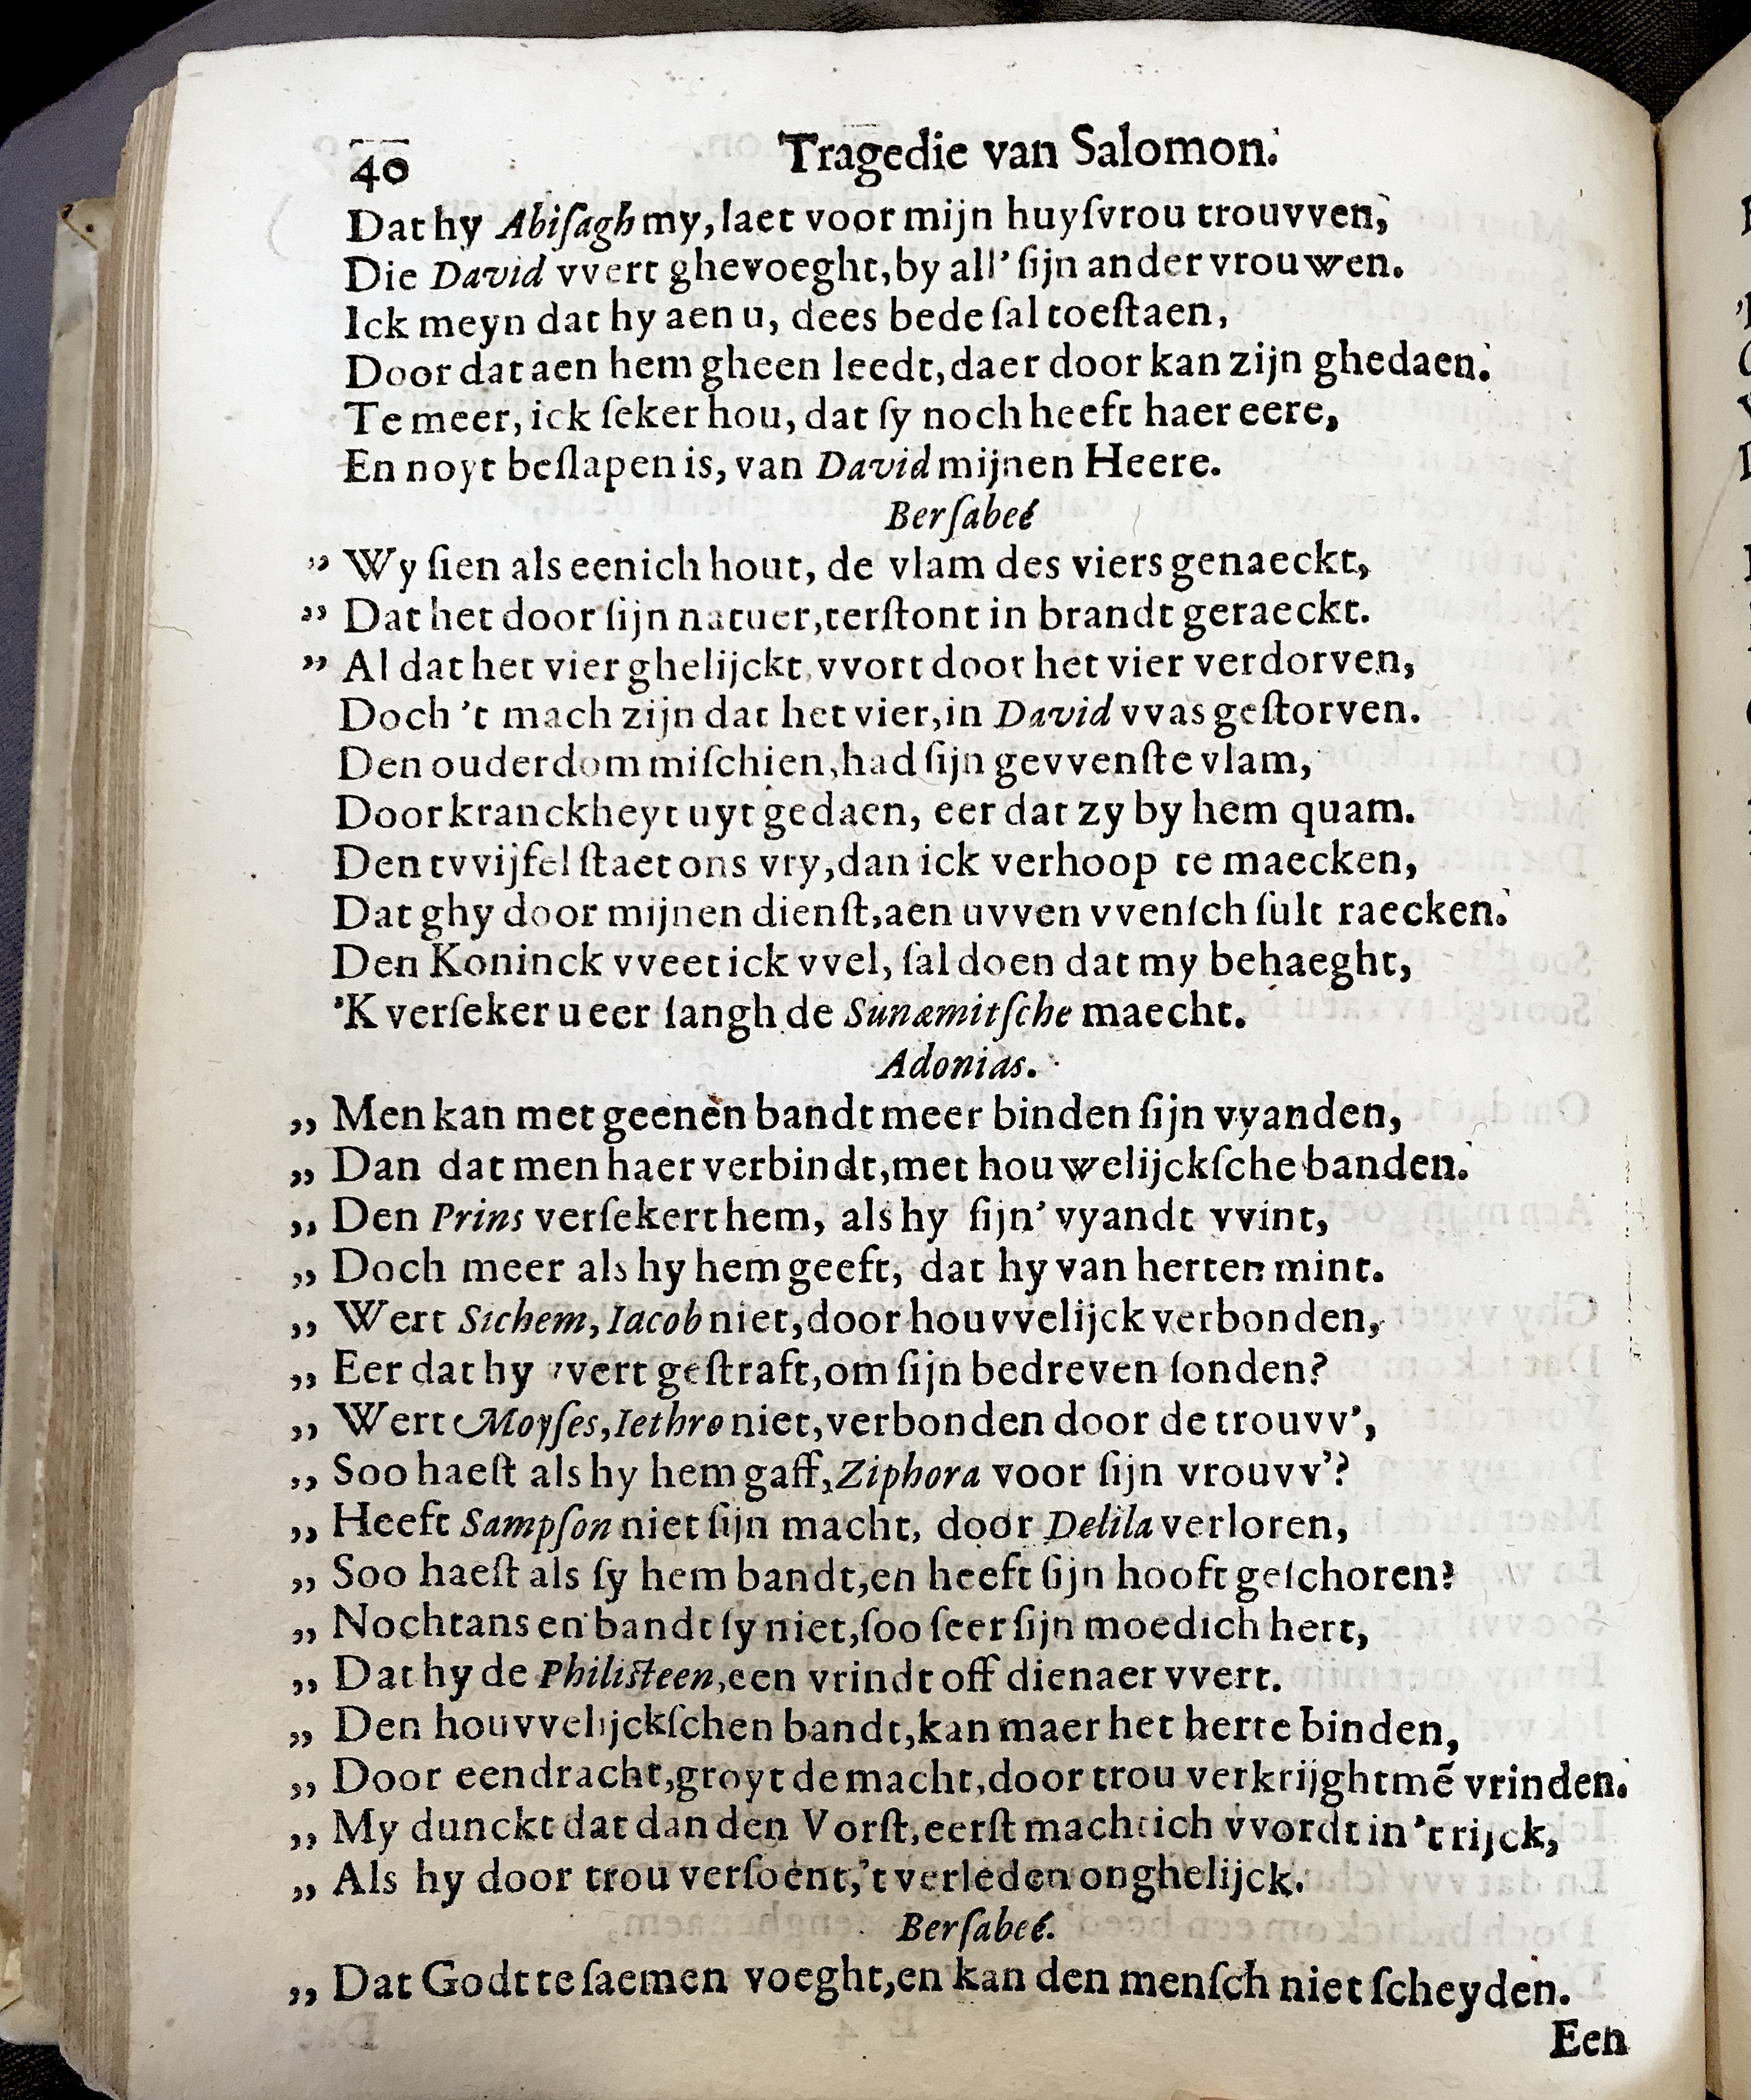 40 Tragedie van Salomon.
Dat hy Abiſagh my, laet voor mijn huyſvrou trouvven,
Die David vvert ghevoeght, by all' ſijn ander vrouwen.
Ick meyn dat hy aen u, dees bede ſal toeſtaen,
Door dat aen hem gheen leedt, daer door kan zijn ghedaen.
Te meer, ick ſeker hou, dat ſy noch heeft haer eere,
En noyt beſlapen is, van David mijnen Heere.
Berſabeé
,, Wy ſien als eenich hout, de vlam des viers genaeckt,
,, Dat het door ſijn natuer, terſtont in brandt geraeckt.
,, Al dat het vier ghelijckt, vvort door het vier verdorven,
Doch 't mach zijn dat het vier, in David vvas geſtorven.
Den ouderdom miſchien, had ſijn gevvenſte vlam,
Door kranckheyt uyt gedaen, eer dat zy by hem quam.
Den tvvijfel ſtaet ons vry, dan ick verhoop te maecken,
Dat ghy door mijnen dienſt, aen uvven vvenſch ſult raecken.
Den Koninck vveet ick vvel, ſal doen dat my behaeght,
'K verſeker u eer langh de Sunæmitſche maecht.
Adonias.
,, Men kan met geenen bandt meer binden ſijn vyanden,
,, Dan dat men haer verbindt, met houwelijckſche banden.
,, Den Prins verſekert hem, als hy ſijn' vyandt vvint,
,, Doch meer als hy hem geeft, dat hy van herten mint.
,, Wert Sichem, Iacob niet, door houvvelijck verbonden,
,, Eer dat hy vvert geſtraft, om ſijn bedreven ſonden?
,, Wert Moyſes, Iethro niet, verbonden door de trouvv',
,, Soo haeſt als hy hem gaff, Ziphora voor ſijn vrouvv'?
,, Heeft Sampſon niet ſijn macht, door Delila verloren,
,, Soo haeſt als ſy hem bandt, en heeft ſijn hooft geſchoren?
,, Nochtans en bandt ſy niet, ſoo ſeer ſijn moedich hert,
,, Dat hy de Philiſteen, een vrindt off dienaer vvert.
,, Den houvvelijckſchen bandt, kan maer het herte binden,
,, Door eendracht, groyt de macht, door trou verkrijght mẽ vrinden.
,, My dunckt dat dan den Vorſt, eerſt machtich vvordt in 't rijck,
,, Als hy door trou verſoent, 't verleden onghelijck.
Berſabeé.
,, Dat Godt te ſaemen voeght, en kan den menſch niet ſcheyden.
Een